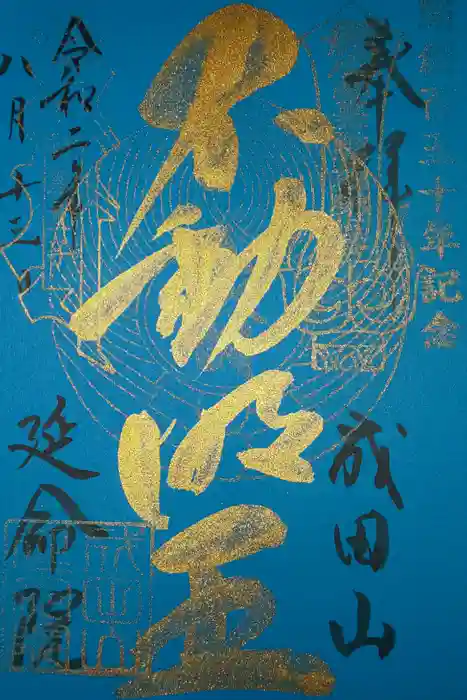 十年記念
奉拝
成田山
不動明王
令和二年
八月十三日
延命院